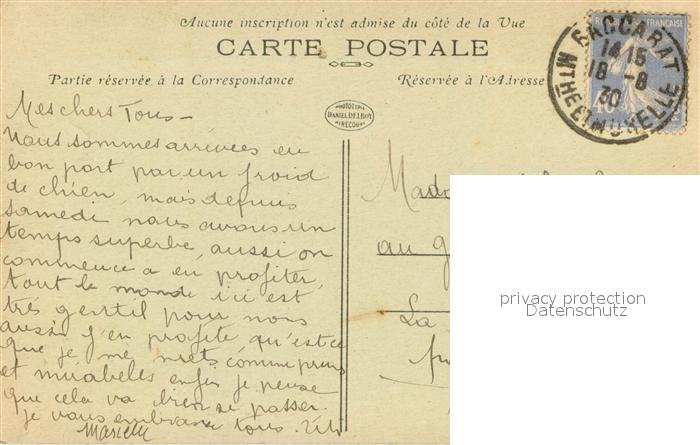 Aucune inscription n'est admise du côté de la Vue
CARTE POSTALE
Partie réservée à la Correspondance
Réservée à l'Adresse
PHOTOTYPIE
DANIEL DELBOY
MIRECOURT
REPUBLIQUE FRANÇAISE
BACCARAT
14 15
18 -8
30
MTHE ET MOSELLE
Mes chers Tous -
Nous sommes arrivées en
bon port par un froid
de chien, mais depuis
samedi nous avons un
temps superbe, aussi on
commence a en profiter,
tout le monde ici est
très gentil pour nous
aussi j'en profite, qu'est ce
que je me mets comme prunes
et mirabelles enfin je pense
que cela va bien se passer.
je vous embrasse tous.
au
La
privacy protection
Datenschutz